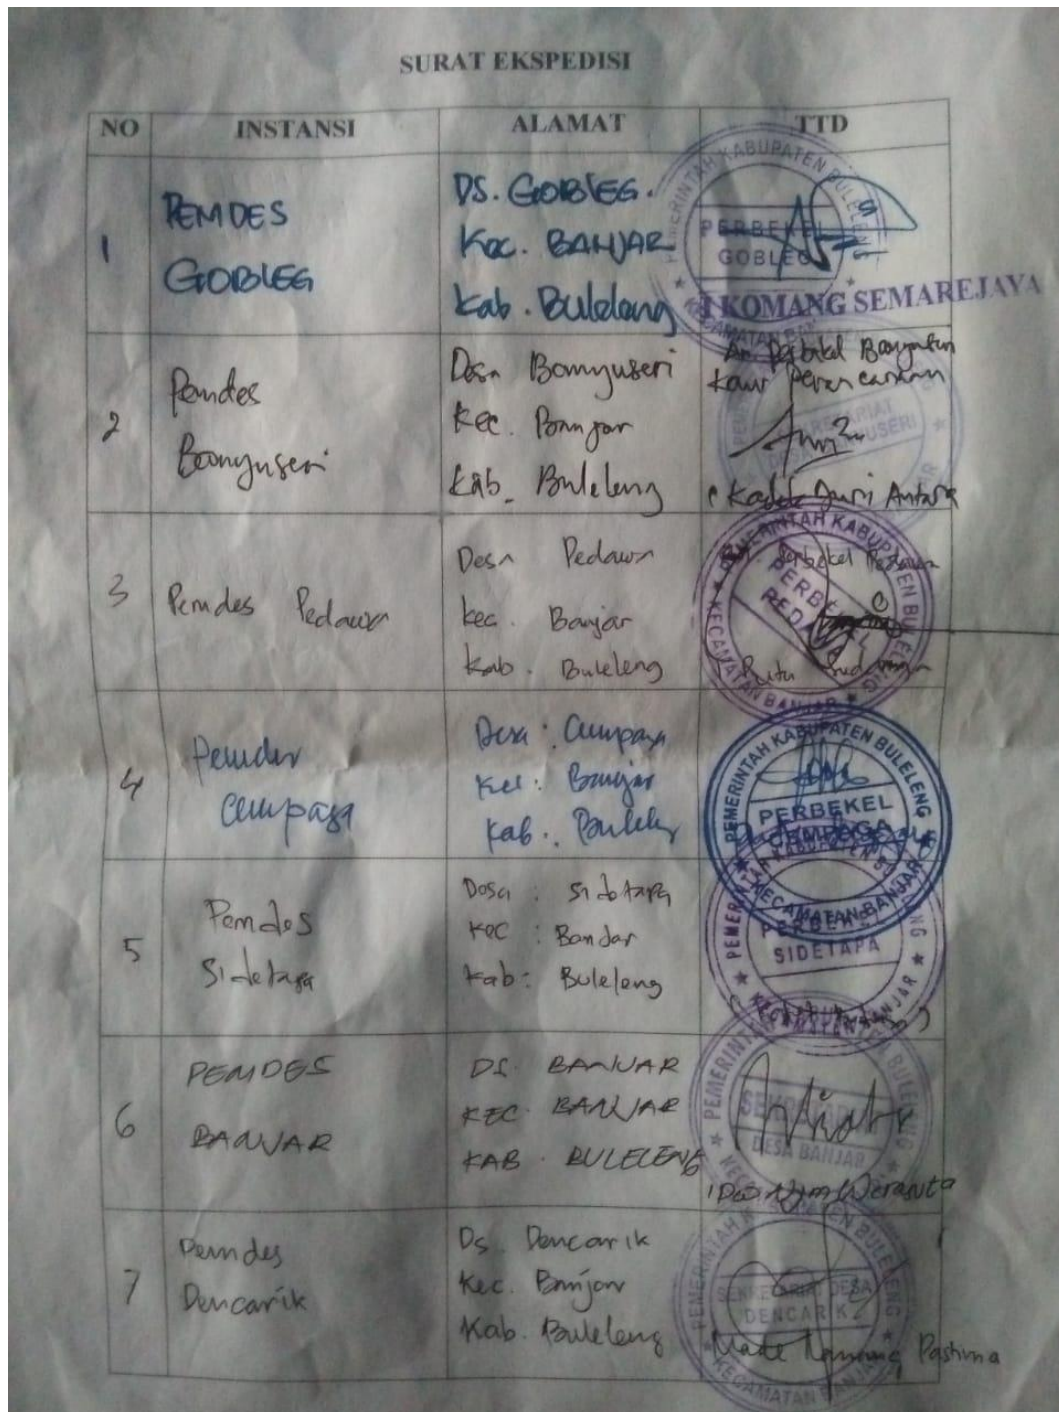 SURAT EKSPEDISI
NO INSTANSI ALAMAT TTD
1
PEMDES
GOBLEG
DS. GOBLEG.
Kec. BANJAR
Kab. Buleleng
PEMERINTAH KABUPATEN BULELENG
PERBEKEL
GOBLEG
KECAMATAN BANJAR
I KOMANG SEMAREJAYA
2
Pemdes
Banyuseri
Desa Banyuseri
Kec. Banjar
Kab. Buleleng
An. Perbekel Banyuseri
Kaur Perencanaan
SEKRETARIAT
Kadek Juni Antara
3
Pemdes Pedawa
Desa Pedawa
kec. Banjar
kab. Buleleng
PEMERINTAH KABUPATEN BULELENG
PERBEKEL
PEDAWA
KECAMATAN BANJAR
Perbekel Pedawa
4
Pemdes
Cempaga
Desa : Cempaga
Kec : Banjar
Kab. : Buleleng
PEMERINTAH KABUPATEN BULELENG
PERBEKEL
CEMPAGA
KECAMATAN BANJAR
5
Pemdes
Sidetapa
Desa : Sidetapa
Kec : Bandar
Kab : Buleleng
PERBEKEL
SIDETAPA
KECAMATAN BANJAR
6
PEMDES
BANJAR
DS. BANJAR
KEC. BANJAR
KAB. BULELENG
DESA BANJAR
7
Pemdes
Dencarik
Ds. Dencarik
Kec. Banjar
Kab. Buleleng
PEMERINTAH KABUPATEN BULELENG
SEKRETARIAT DESA
DENCARIK
KECAMATAN BANJAR
Made